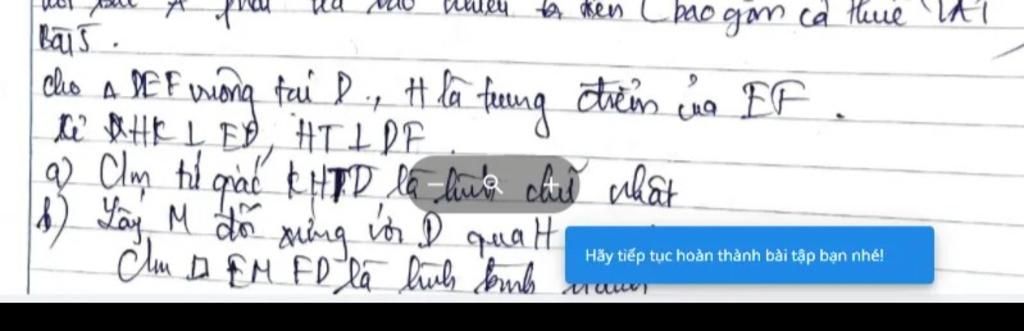 phải trả bao nhiêu tiền (bao gồm cả thuế VAT
Bài 5.
cho Δ DEF vuông tại D., H là trung điểm của EF.
Kẻ HK ⊥ ED, HT ⊥ DF.
a) Cm tứ giác KHTD là hình chữ nhật
b) Lấy M đối xứng với D qua H
Hãy tiếp tục hoàn thành bài tập bạn nhé!
Cm □ EMFD là hình bình hành